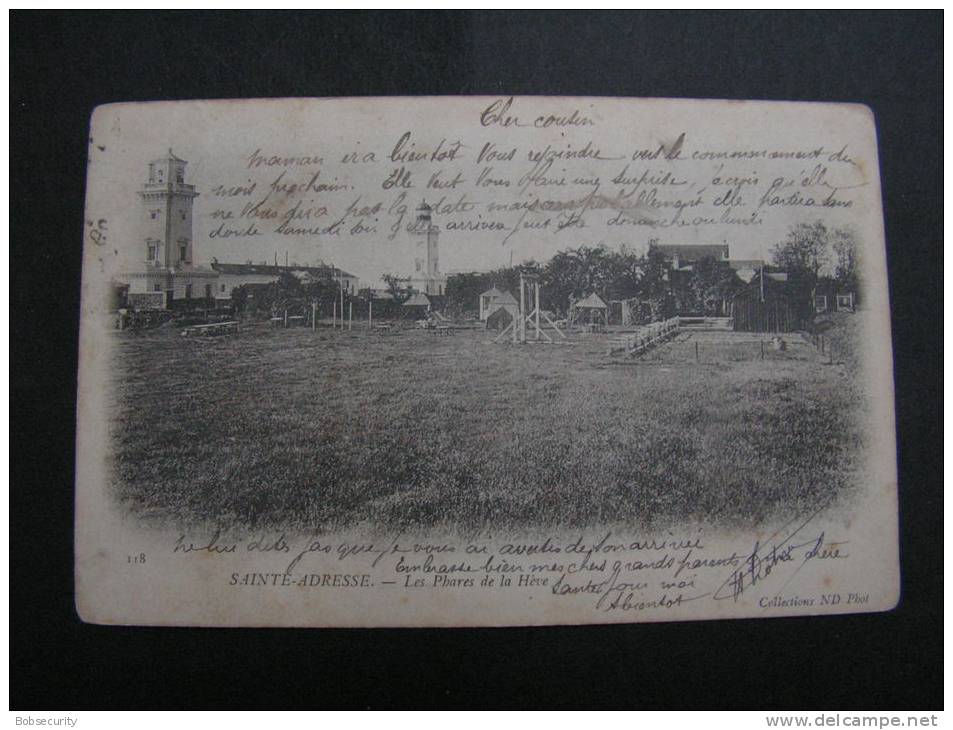 Cher cousin
maman ira bientot Vous rejoindre vers le commencement du
mois prochain. Elle Veut Vous faire une surprise, je crois qu'elle
ne Vous dira pas la date mais probablement elle partira dans
doute samedi soir elle arrivera peut etre dimanche ou lundi
ne lui dites pas que je vous ai avertis de son arrivée
Embrasse bien mes chers grands parents
et ma chère
tante pour moi
A bientot
118
SAINTE-ADRESSE. — Les Phares de la Hève
Collections ND Phot
Bobsecurity
www.delcampe.net